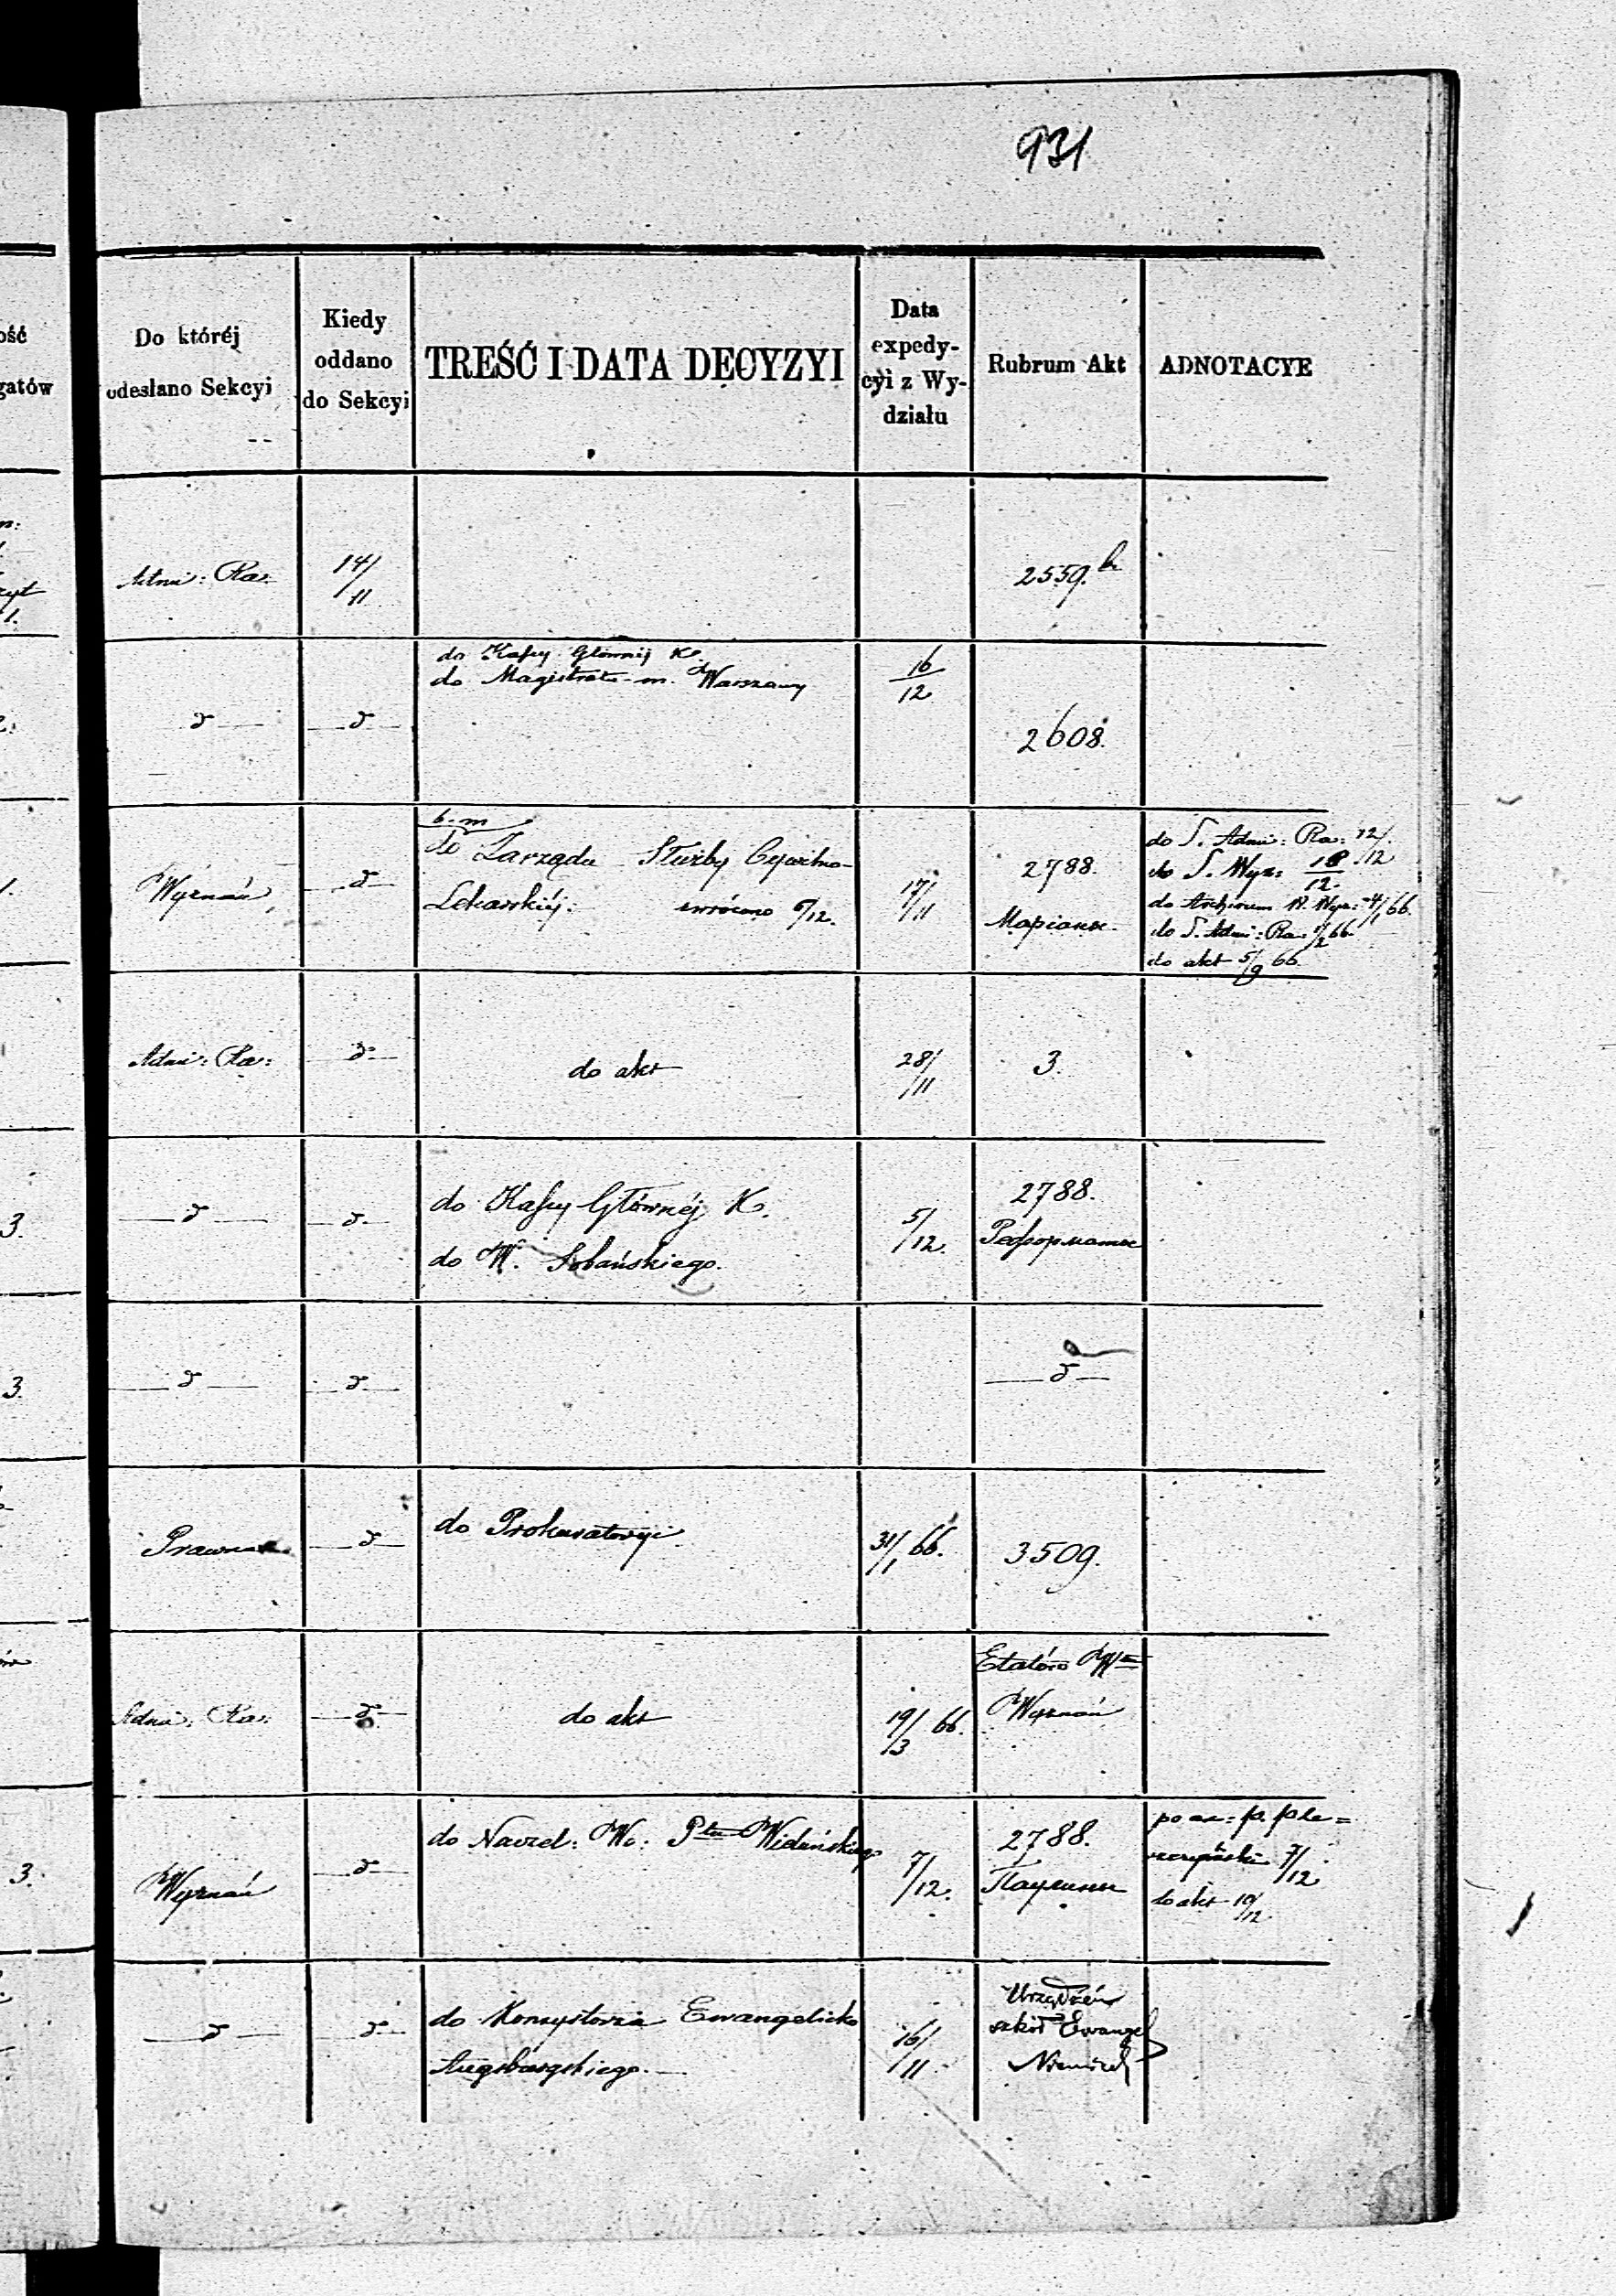 931
Do któréj
odesłano Sekcyi
Kiedy
oddano
do Sekcyi
TREŚĆ I DATA DECYZYI
Data
expedy-
cyi z Wy-
działu
Rubrum Akt
ADNOTACYE
ość
gatów
Admi: Ra:
14/11
2559. b
do Kassy Głównéj K.
do Magistratu m. Warszawy
16/12
2608.
b. m
do Zarządu Służby Cywilno-
Lekarskiéj. zwrócono 6/12.
Wyznań
17/11
2788.
Маріанъ
do S. Admi: Ra: 12/12
do S. Wyz: 18/12
do Archiwum W. Wyz: 4/1 66.
do S. Admi: Ra: 1/2 66.
do akt 5/9 66.
Admi: Ra:
do akt
28/11
3.
3.
do Kassy Głównéj K.
do W. Sobańskiego.
5/12.
2788.
Реформатъ
3.
Prawna
do Prokuratoryi
31/1 66.
3509.
Admi: Ra:
do akt
19/3 66.
Etatów
Wyznań
3.
Wyznań
do Naczel: Wo: Ptu Wieluńskiego
7/12.
2788.
Паулинъ
7/12
do akt 10/12
do Konsystorza Ewangelicko
Augsburgskiego.
16/11
Urządzeń
szkół Ewangel
Niemiec